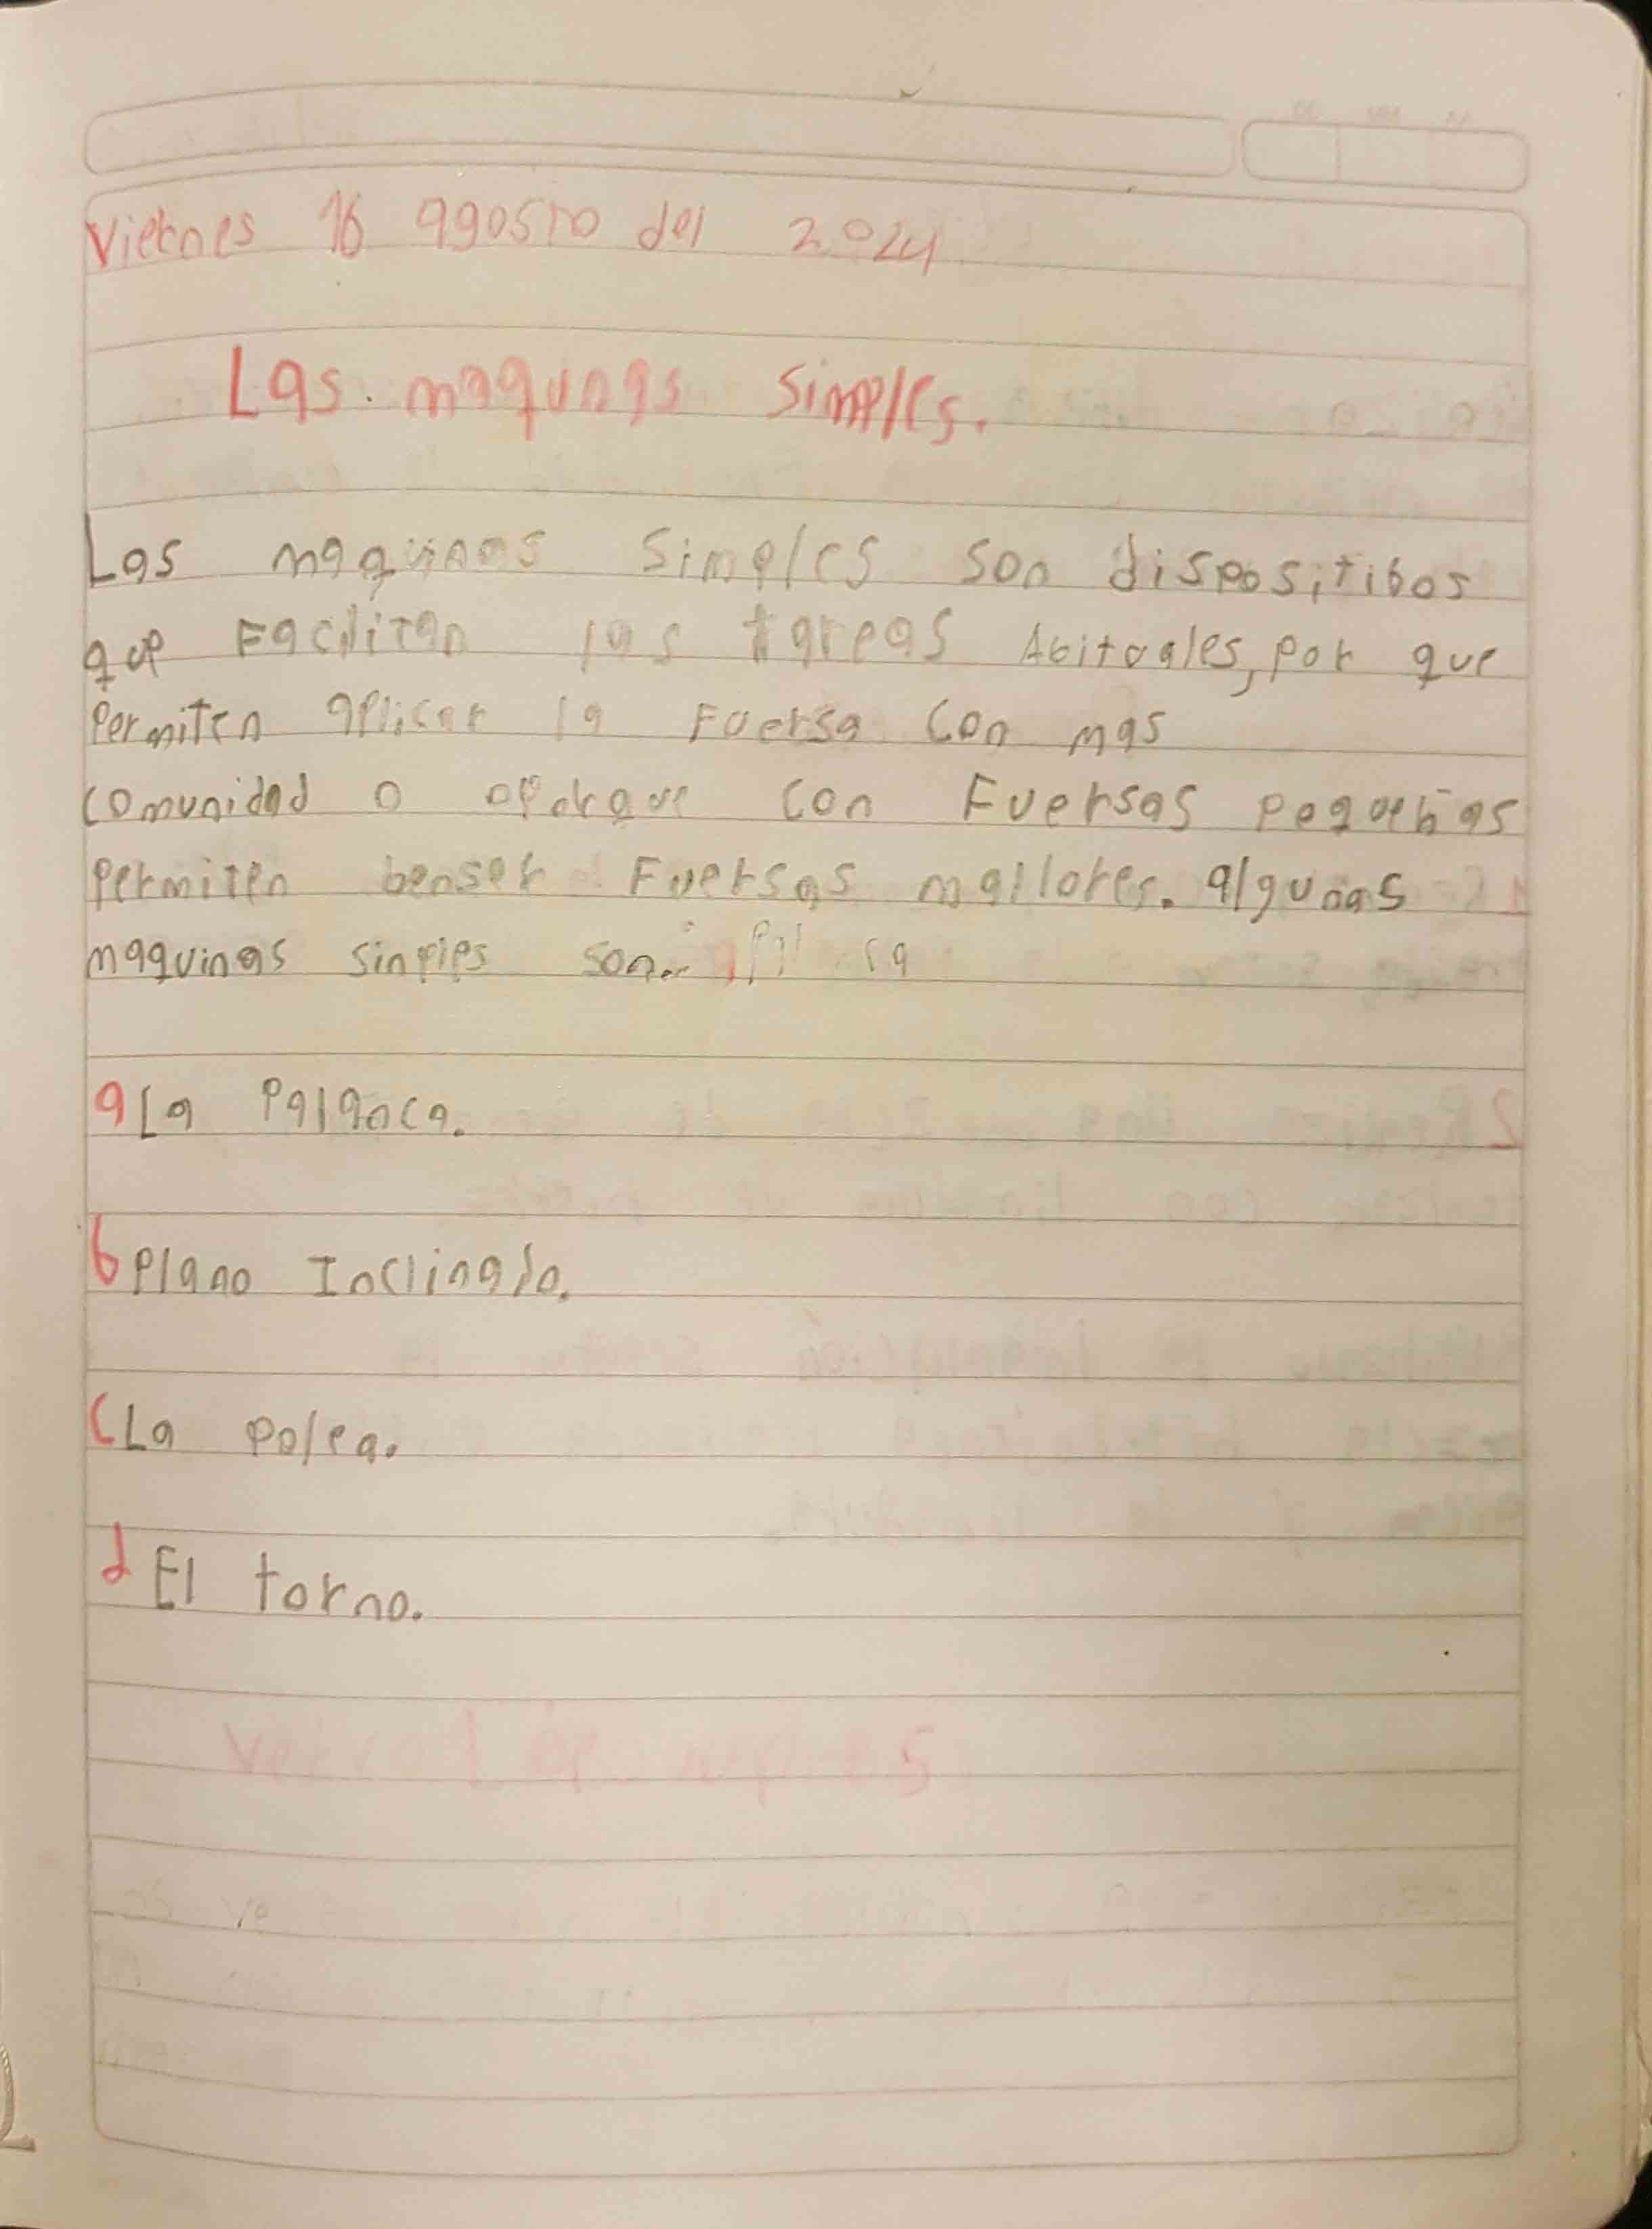 Viernes 16 agosto del 2024
Las maqunas simples.
Las maquinas simples son dispositibos
que Facilitan las tareas Abituales, por que
Permiten aplicar la Fuersa con mas
comunidad o con Fuersas pequeñas
Permiten benser Fuersas mallores. algunas
maquinas simples son..
a La Palanca.
b Plano Inclinado.
c La polea.
d El torno.